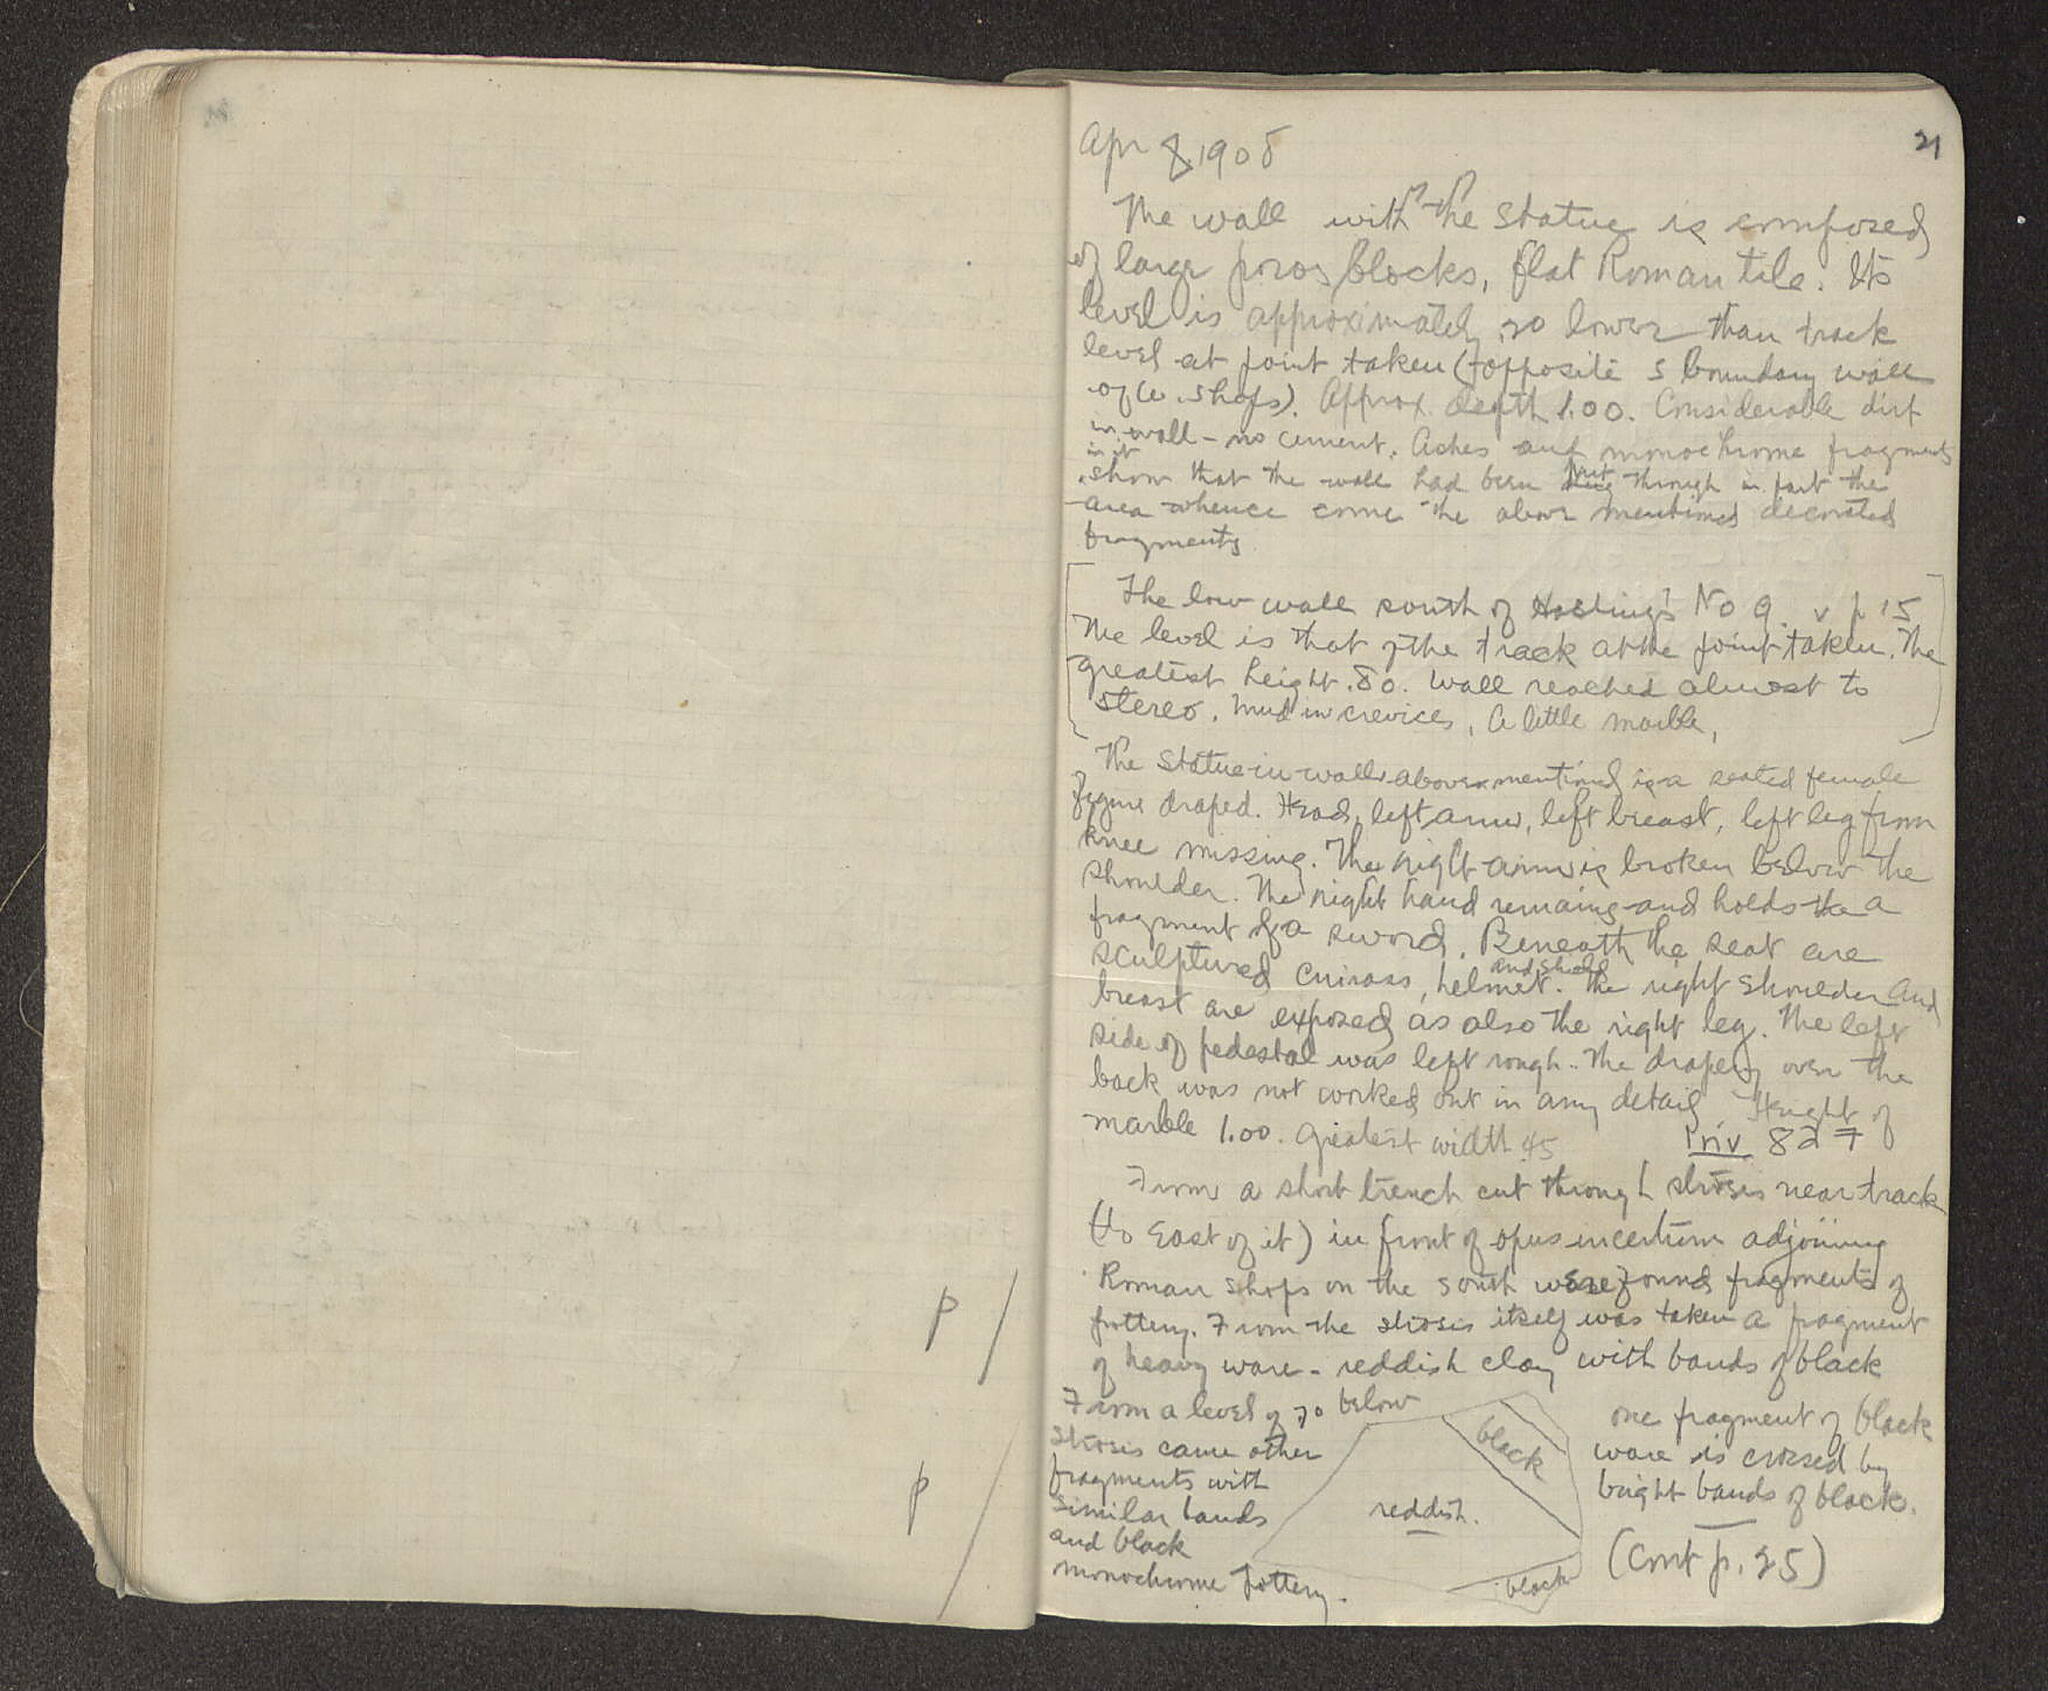 Apr 8, 1908
21
The wall with the statue is composed
of large poros blocks, flat Roman tile. Its
level is approximately .20 lower than track
level at point taken (opposite S boundary wall
of W. shops). Approx. depth 1.00. Considerable dirt
in wall - no cement. Ashes and monochrome fragments
in it
show that the wall had been put through in part the
area whence come the above mentioned decorated
fragments
The low wall south of Hastings No 9. v p 15
The level is that of the track at the point taken. The
greatest height .80. Wall reached almost to
stereo. Mud in crevices, a little marble,
The statue in wall above mentioned is a seated female
figure draped. Head, left arm, left breast, left leg from
knee missing. The right arm is broken below the
shoulder. The right hand remains and holds the a
fragment of a sword. Beneath the seat are
sculptured cuirass, helmet and shield. The right shoulder and
breast are exposed as also the right leg. The left
side of pedestal was left rough. The drapery over the
back was not worked out in any detail. Height of
marble 1.00. Greatest width .45
Priv 827
From a short trench cut through strosis near track
(to East of it) in front of opus incertum adjoining
Roman shops on the south were found fragments of
pottery. From the strosis itself was taken a fragment
of heavy ware - reddish clay with bands of black
From a level of .70 below
strosis came other
fragments with
similar bands
and black
monochrome pottery.
black
reddish.
black
one fragment of black
ware is crossed by
bright bands of black.
(Cont p. 25)
p /
p /